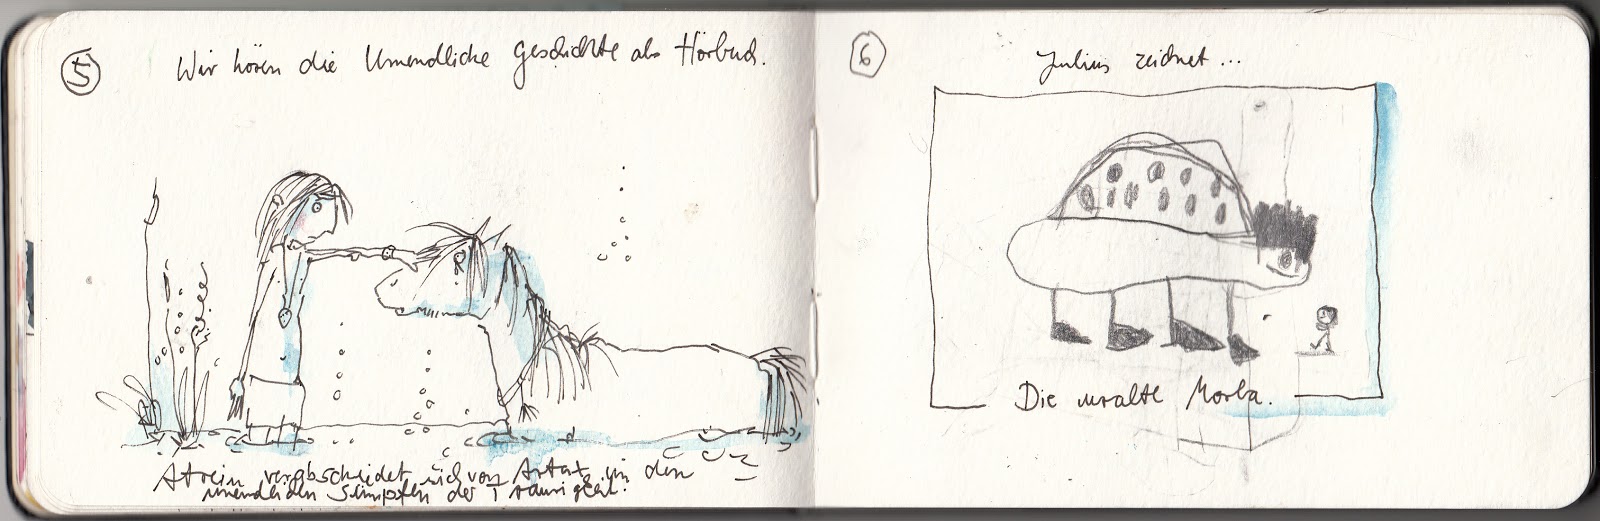 5
Wir hören die Unendliche Geschichte als Hörbuch.
Atreju verabschiedet sich von Artax in den
unendlichen Sümpfen der Traurigkeit.
6
Julius zeichnet...
Die uralte Morla.